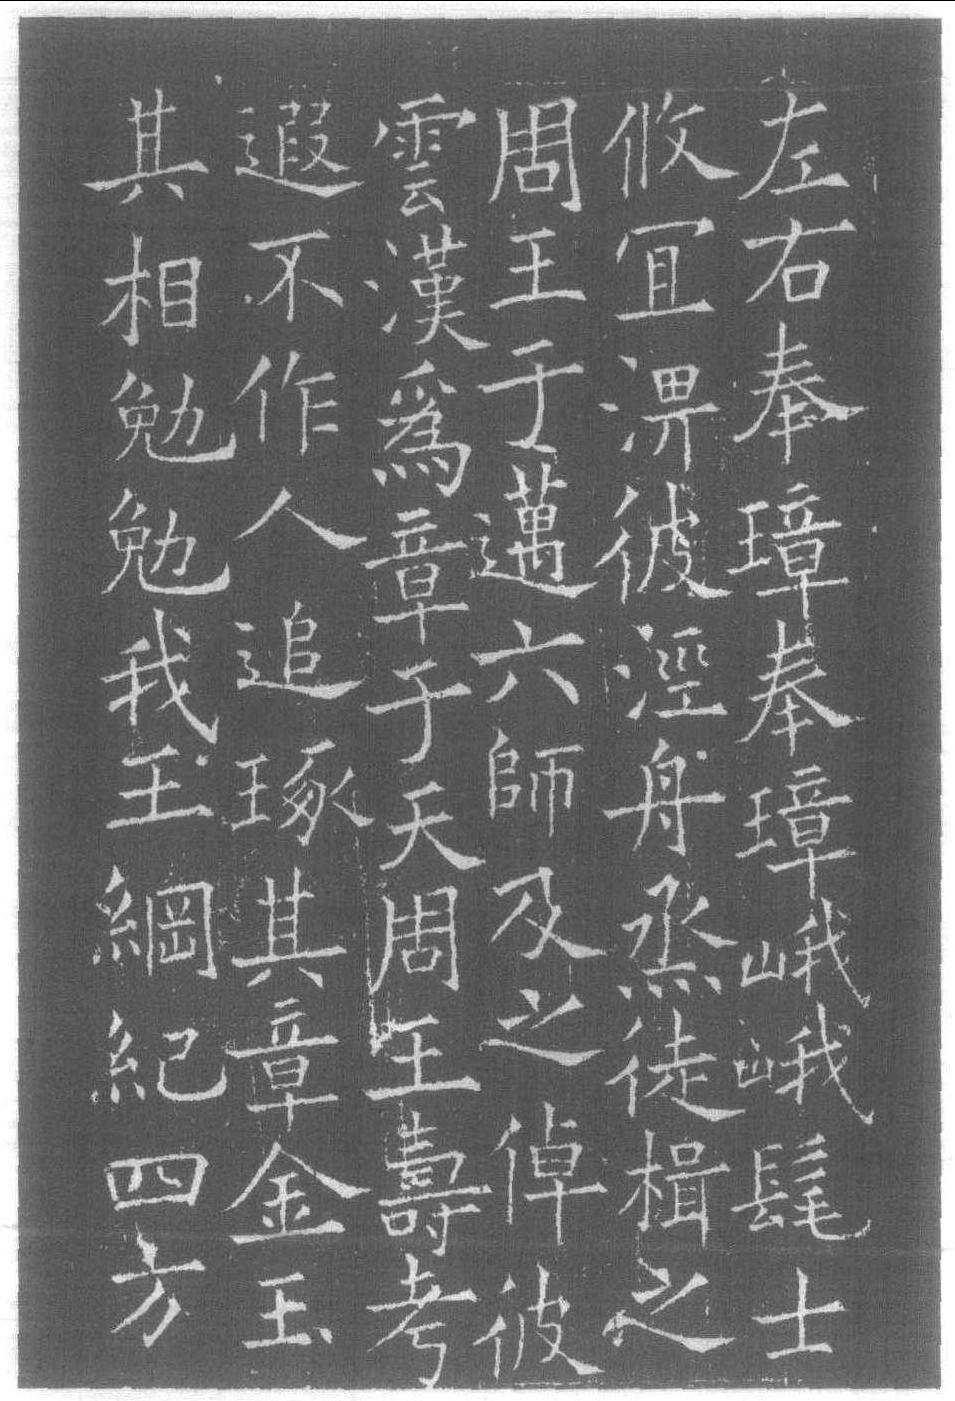 左右奉璋奉璋峨峨髦士
攸宜淠彼涇舟烝徒楫之
周王于邁六師及之倬彼
雲漢為章于天周王壽考
遐不作人追琢其章金玉
其相勉勉我王綱紀四方